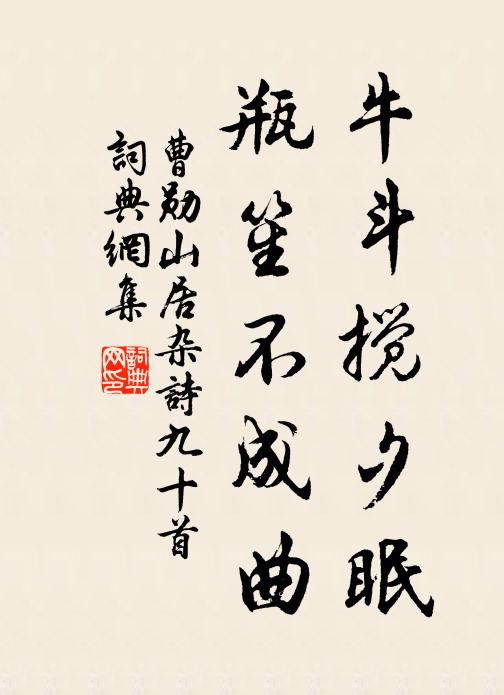 牛斗搅夕眠
瓶笙不成曲
曹勛山居杂詩九十首
詞典網集
詞典网印